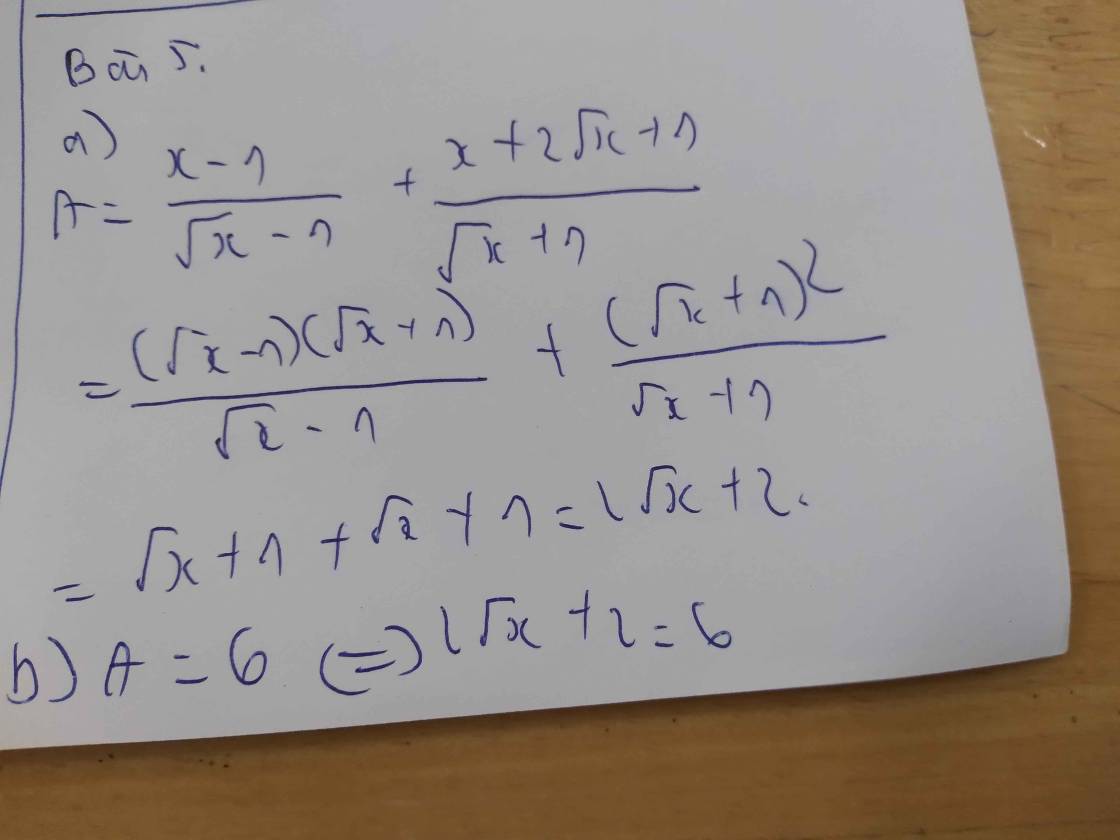 Bài 5.
a)
A = \frac{x-1}{\sqrt{x}-1} + \frac{x+2\sqrt{x}+1}{\sqrt{x}+1}
= \frac{(\sqrt{x}-1)(\sqrt{x}+1)}{\sqrt{x}-1} + \frac{(\sqrt{x}+1)^2}{\sqrt{x}+1}
= \sqrt{x}+1+\sqrt{x}+1=2\sqrt{x}+2.
b) A = 6 (=) 2\sqrt{x}+2=6